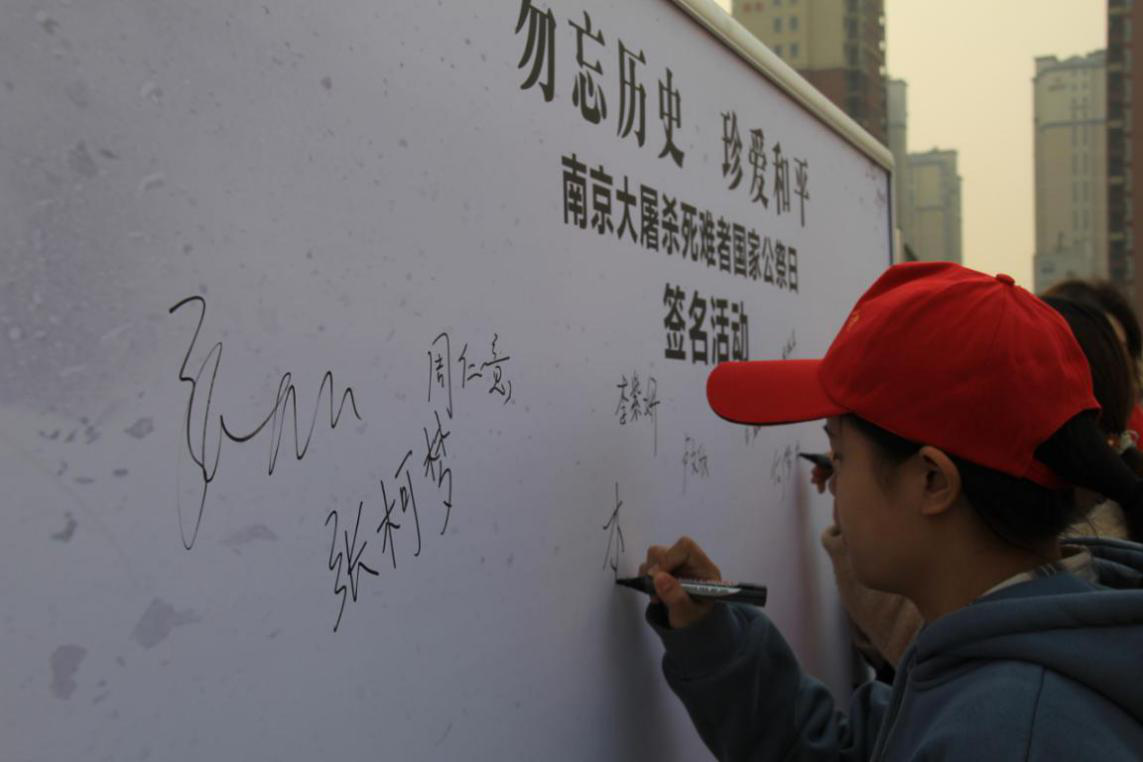 勿忘历史 珍爱和平
南京大屠杀死难者国家公祭日
签名活动
周仁意
李紫妍
张柯梦